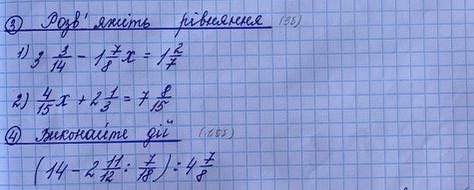 ③ Розв'яжіть рівняння (3б)
1) 3 3/14 - 1 7/8 x = 1 2/7
2) 4/15 x + 2 1/3 = 7 8/15
④ Виконайте дії (1бб)
(14 - 2 11/12 : 7/18) : 4 7/8